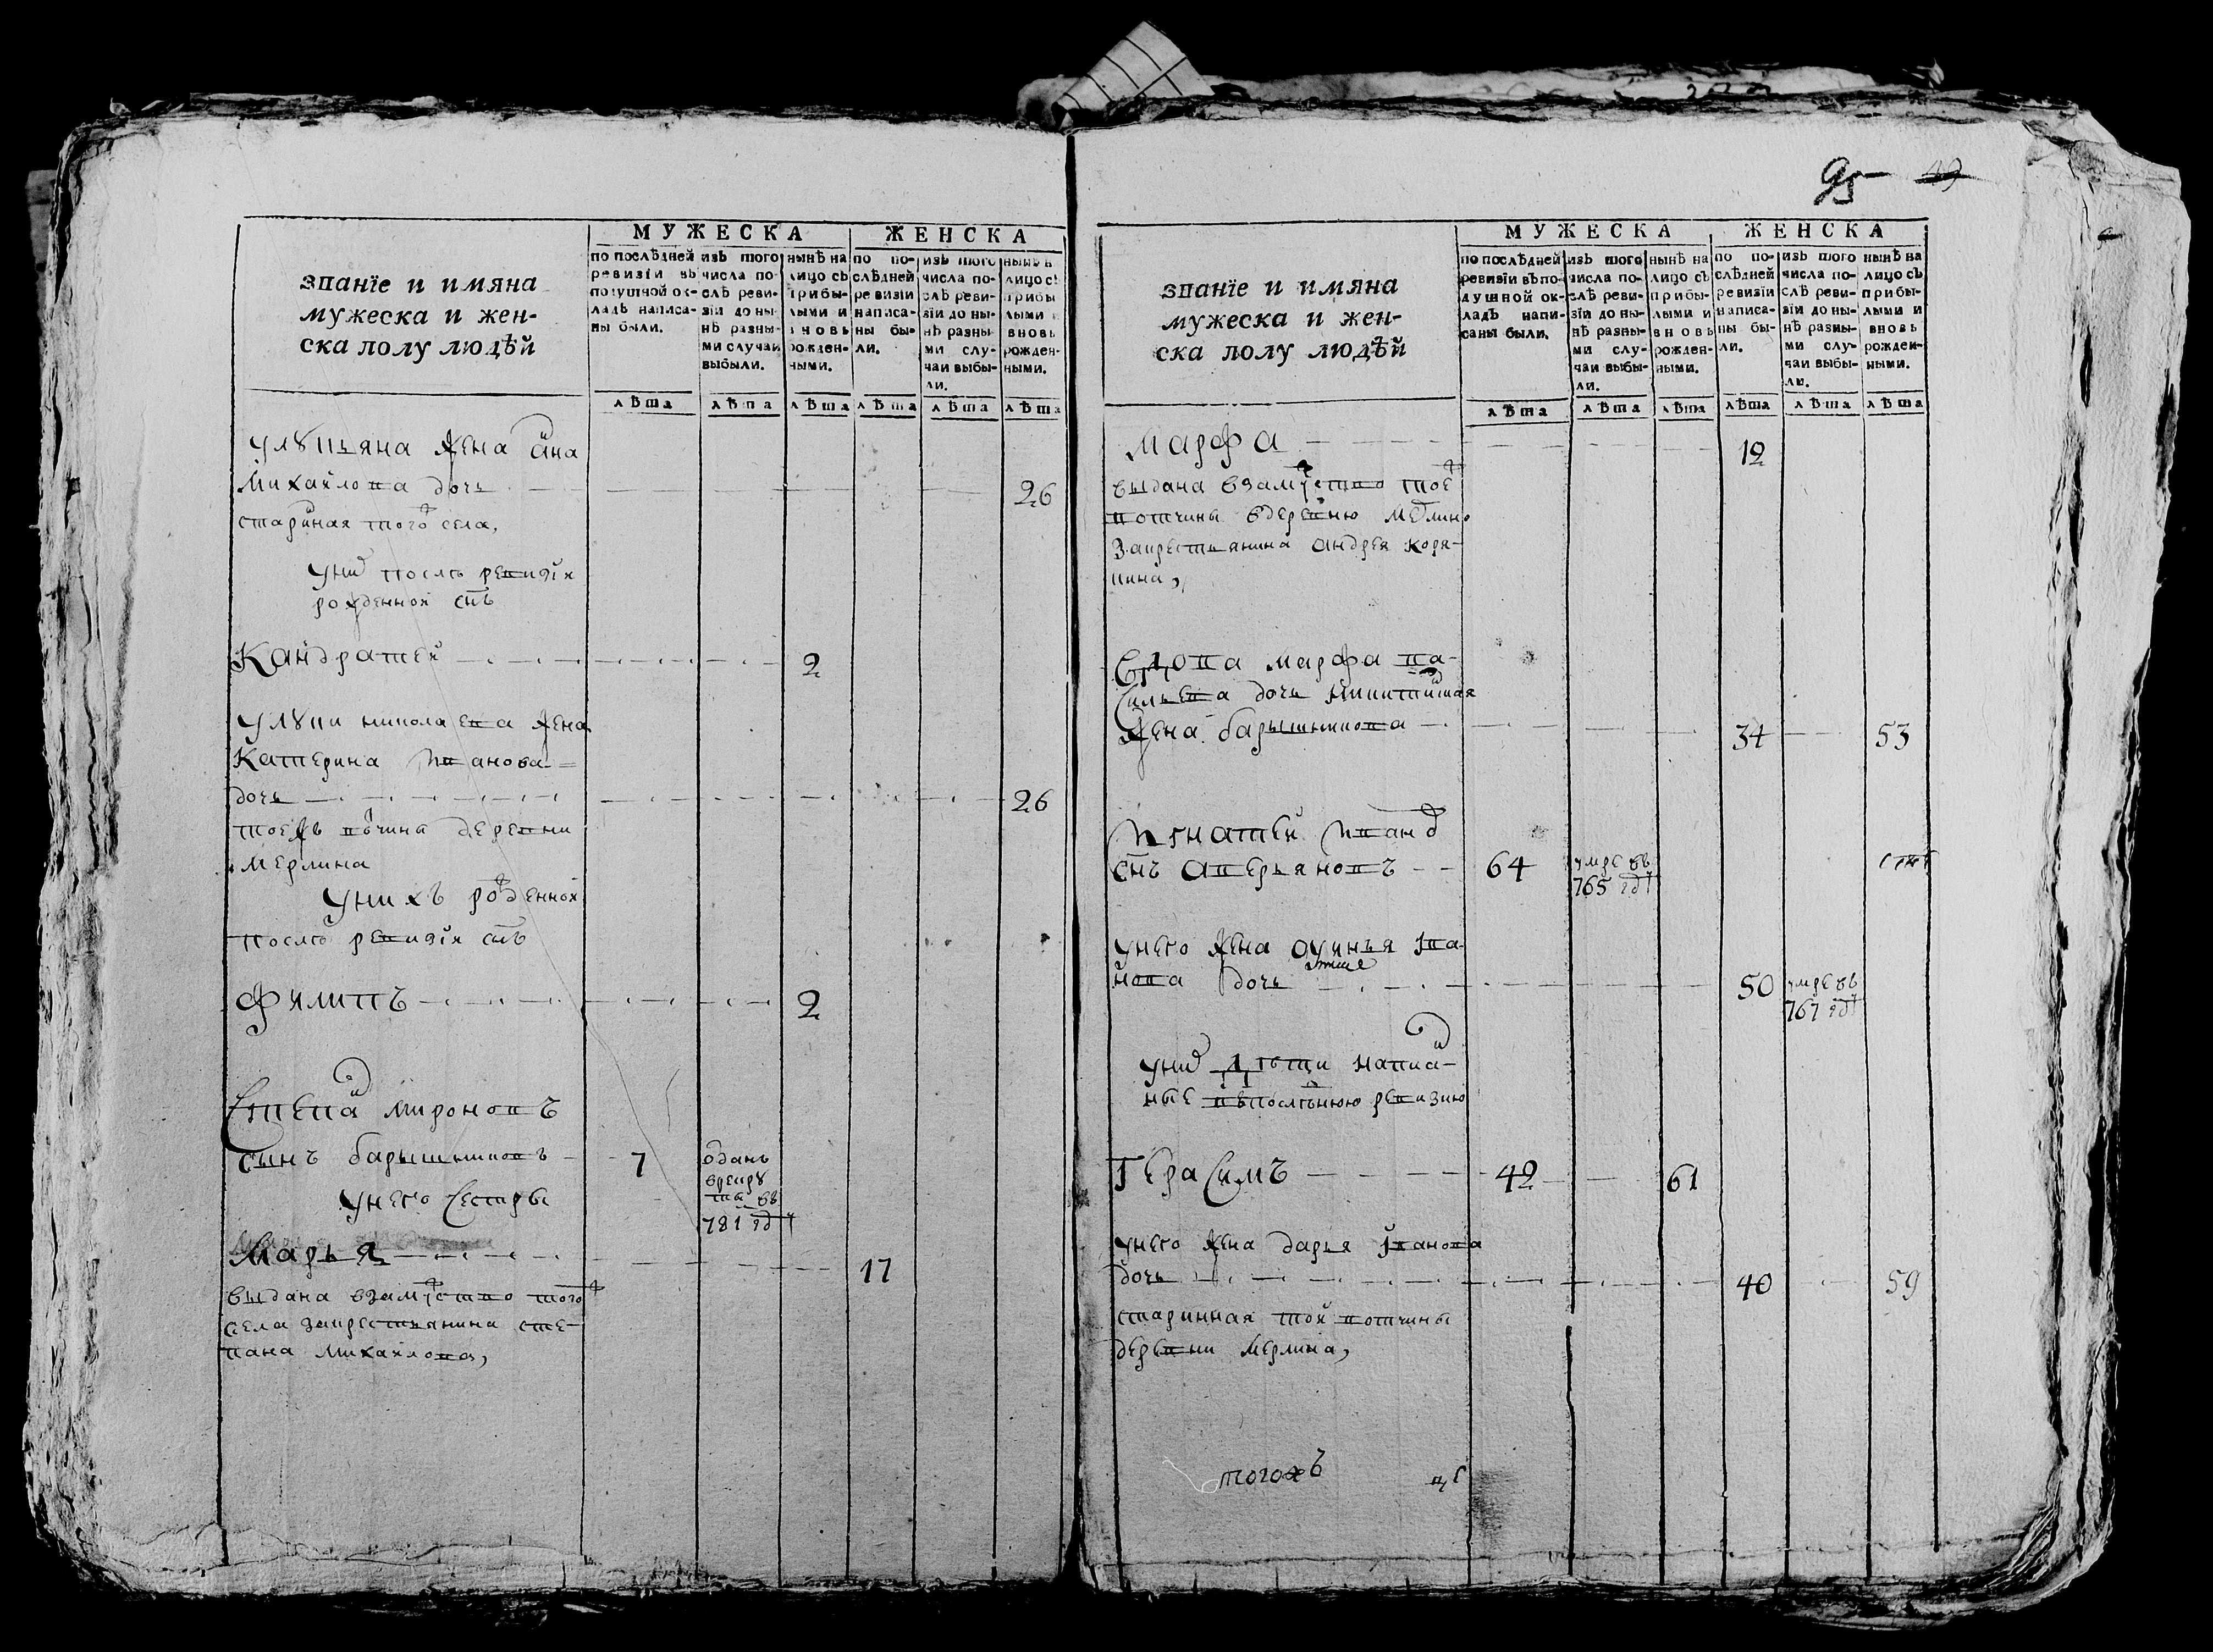 95 49
званїе и имяна
мужеска и жен-
ска полу людѣй
МУЖЕСКА
ЖЕНСКА
по послѣдней
ревизїи въ
подушной ок-
ладѣ написа-
ны были.
изъ того
числа по-
слѣ реви-
зїи до ны-
нѣ разны-
ми случаи
выбыли.
нынѣ на
лицо съ
прибы-
лыми и
вновь
рожден-
ными.
по по-
слѣдней
ревизїи
написа-
ны бы-
ли.
изъ того
числа по-
слѣ реви-
зїи до ны-
нѣ разны-
ми слу-
чаи выбы-
ли.
нынѣ на
лицо съ
прибы-
лыми и
вновь
рожден-
ными.
лѣта лѣта лѣта лѣта лѣта лѣта
улукьяна жена ана
михайлова дочь 26
стариная того села,
уних после ревизїи
рожденной снъ
Кандратей 2
улуки николаева жена
Катерина ивановa
дочь 26
тоежъ вочина деревни
мерлина
унихъ рожденной
после ревизїи снъ
филипъ 2
Степан мироновъ
сынъ барышниковъ 7 оданъ
врекру
ты въ
781 году
унего сестры
Марья 17
выдана взамужство того
села закрестьянина сте-
пана михайлова,
званїе и имяна
мужеска и жен-
ска полу людѣй
МУЖЕСКА
ЖЕНСКА
по послѣдней
ревизїи въ по-
душной ок-
ладѣ напи-
саны были.
изъ того
числа по-
слѣ реви-
зїи до ны-
нѣ разны-
ми слу-
чаи выбы-
ли.
нынѣ на
лицо съ
прибы-
лыми и
вновь
рожден-
ными.
по по-
слѣдней
ревизїи
написа-
ны бы-
ли.
изъ того
числа по-
слѣ реви-
зїи до ны-
нѣ разны-
ми слу-
чаи выбы-
ли.
нынѣ на
лицо съ
прибы-
лыми и
вновь
рожден-
ными.
лѣта лѣта лѣта лѣта лѣта лѣта
марфа 12
выдана взамужство тоеж
вотчины вдеревню мерлино
закрестьянина андрея коря-
кина,
вдова марфа ва-
сильева дочь никитинская
жена барышникова 34 53
игнатей иванов
снъ аверьяновъ 64 умре въ
765 году
унего жена
нова дочь 50 умре въ
767 году
уних дѣти написа-
ные впослѣднюю ревизию
Герасимъ 42 61
унего жена дарья иванова
дочь 40 59
старинная той вотчины
деревни мерлина,